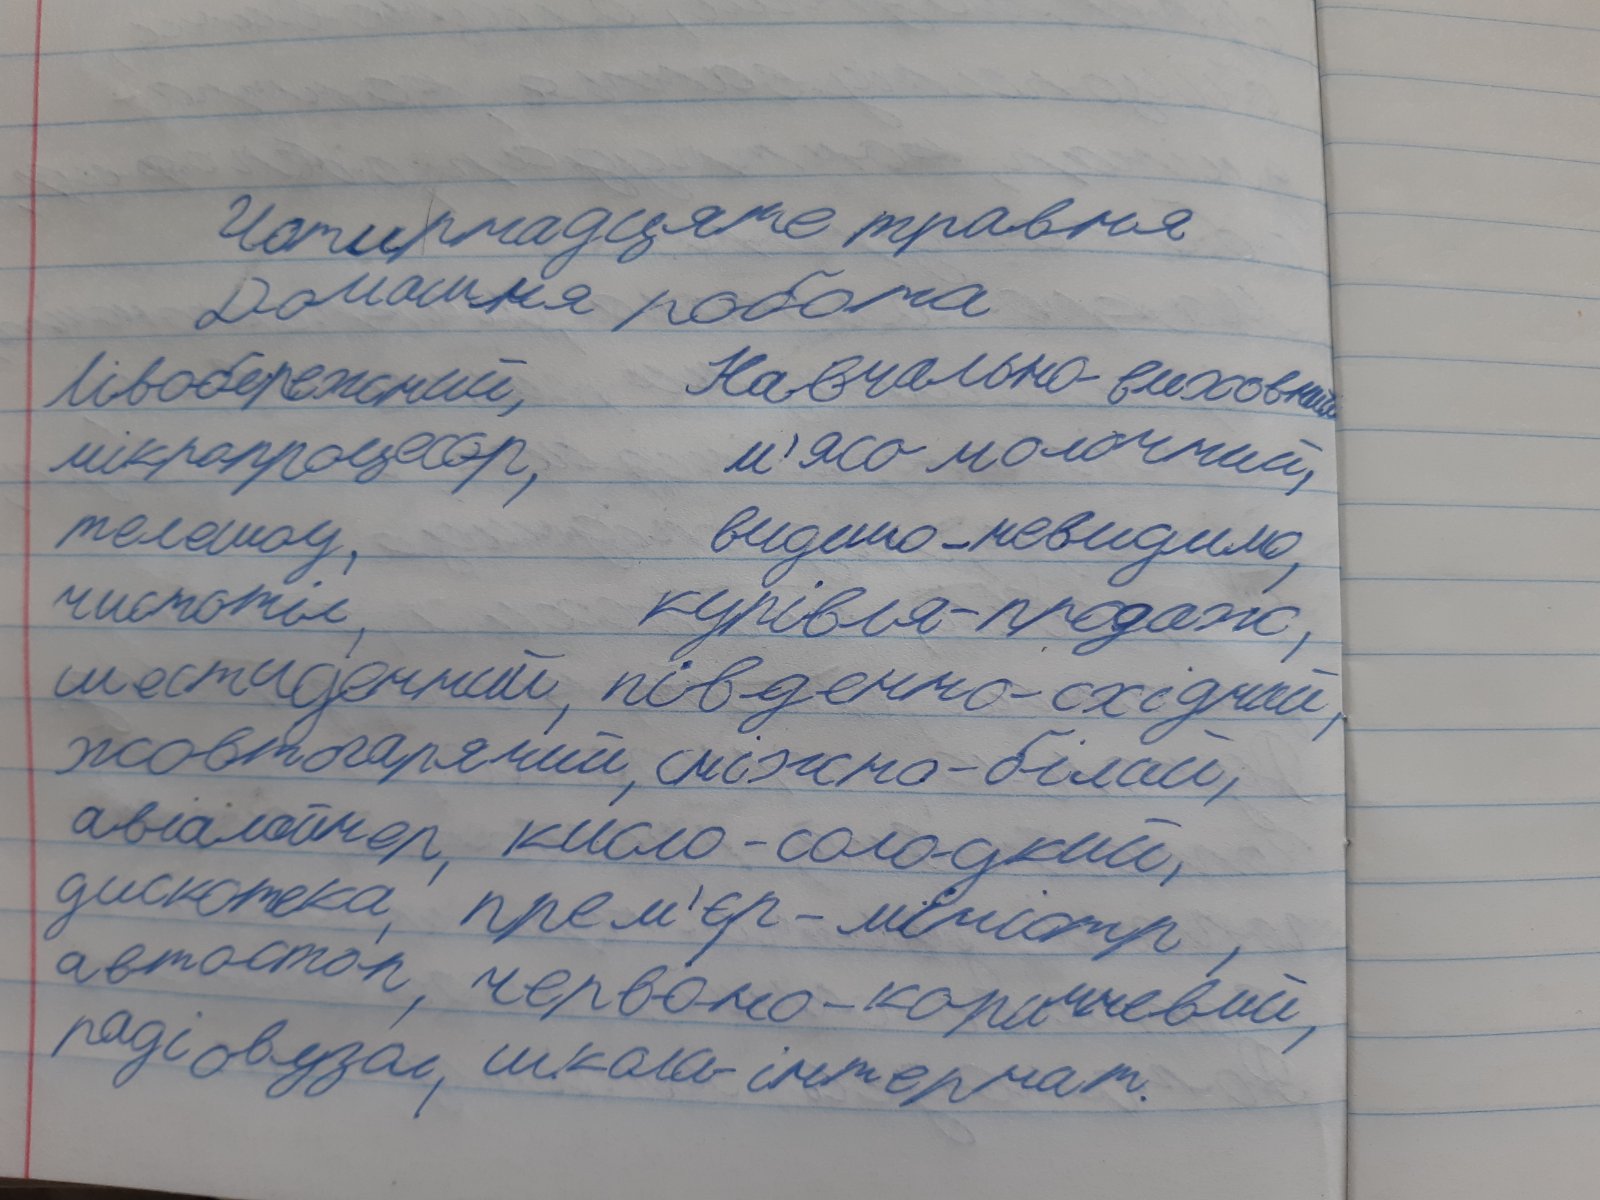 Чотирнадцяте травня
Домашня робота
Лівобережний, Навчально-виховний
мікропроцесор, м'ясо-молочний,
телешоу, видимо-невидимо,
чистотіл, купівля-продаж,
шестиденний, південно-східний,
жовтогарячий, сніжно-білий,
авіалайнер, кисло-солодкий,
дискотека, прем'єр-міністр,
автостоп, червоно-коричневий,
радіовузол, школа-інтернат.